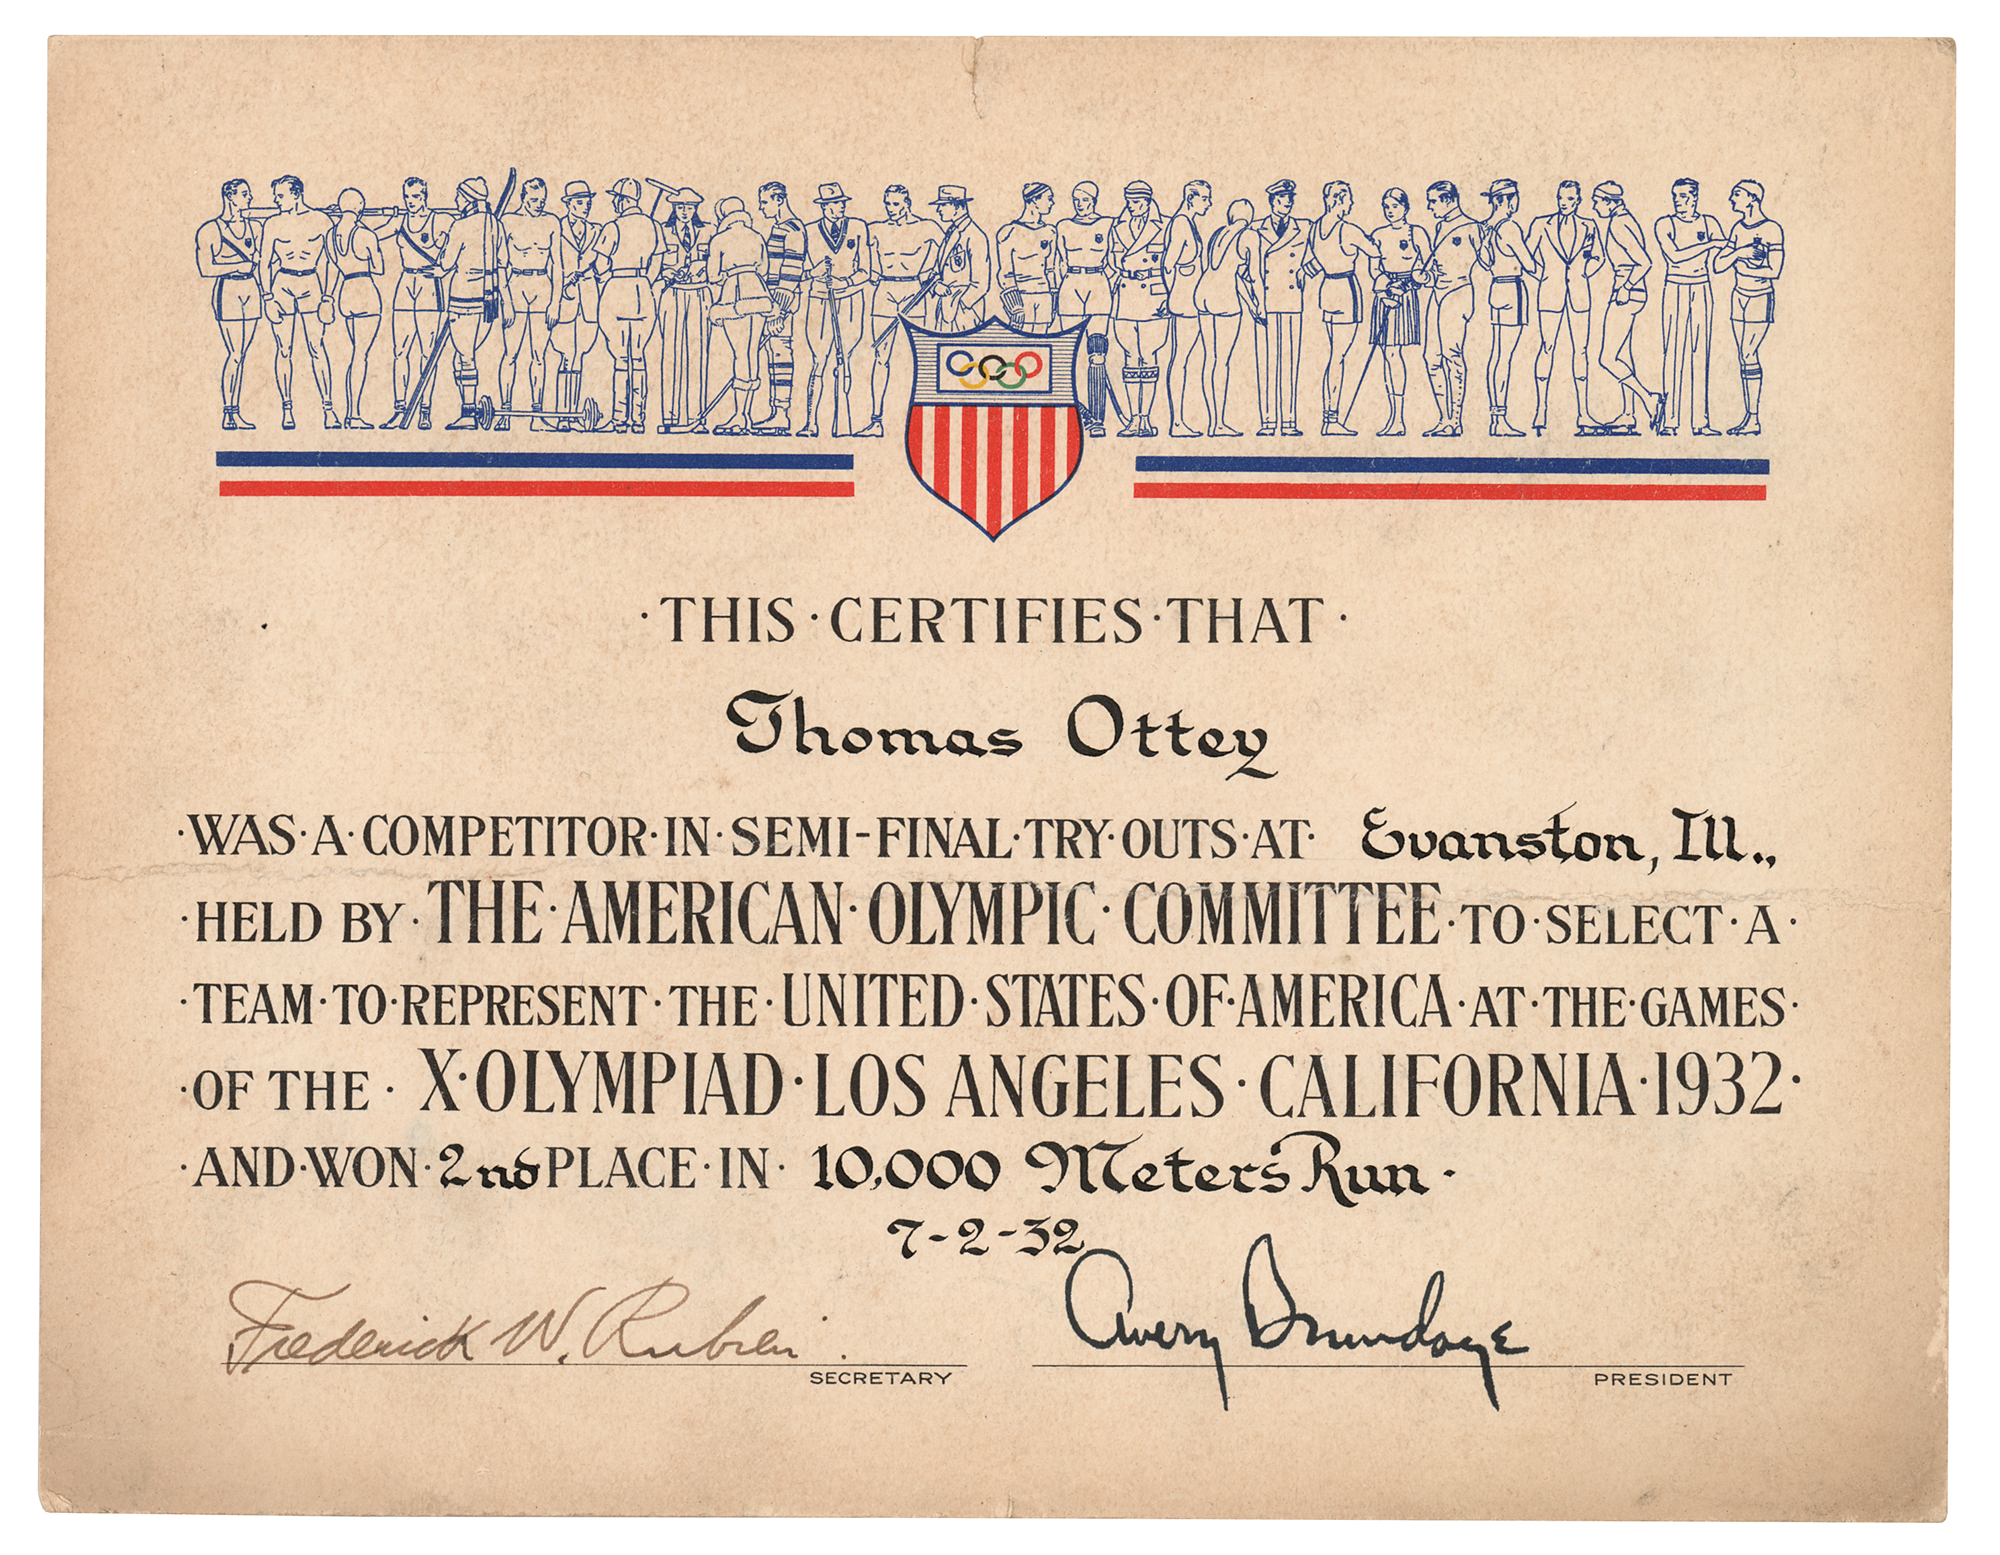 ·THIS·CERTIFIES·THAT·
Thomas Ottey
·WAS·A·COMPETITOR·IN·SEMI-FINAL·TRY·OUTS·AT· Evanston, Ill.,
·HELD BY·THE·AMERICAN·OLYMPIC·COMMITTEE·TO·SELECT·A·
·TEAM·TO·REPRESENT·THE·UNITED·STATES·OF·AMERICA·AT·THE·GAMES·
·OF THE· X·OLYMPIAD·LOS ANGELES·CALIFORNIA·1932·
·AND·WON·2nd PLACE·IN· 10,000 Meter's Run·
7-2-32
Frederick W. Rubien. Avery Brundage
SECRETARY PRESIDENT